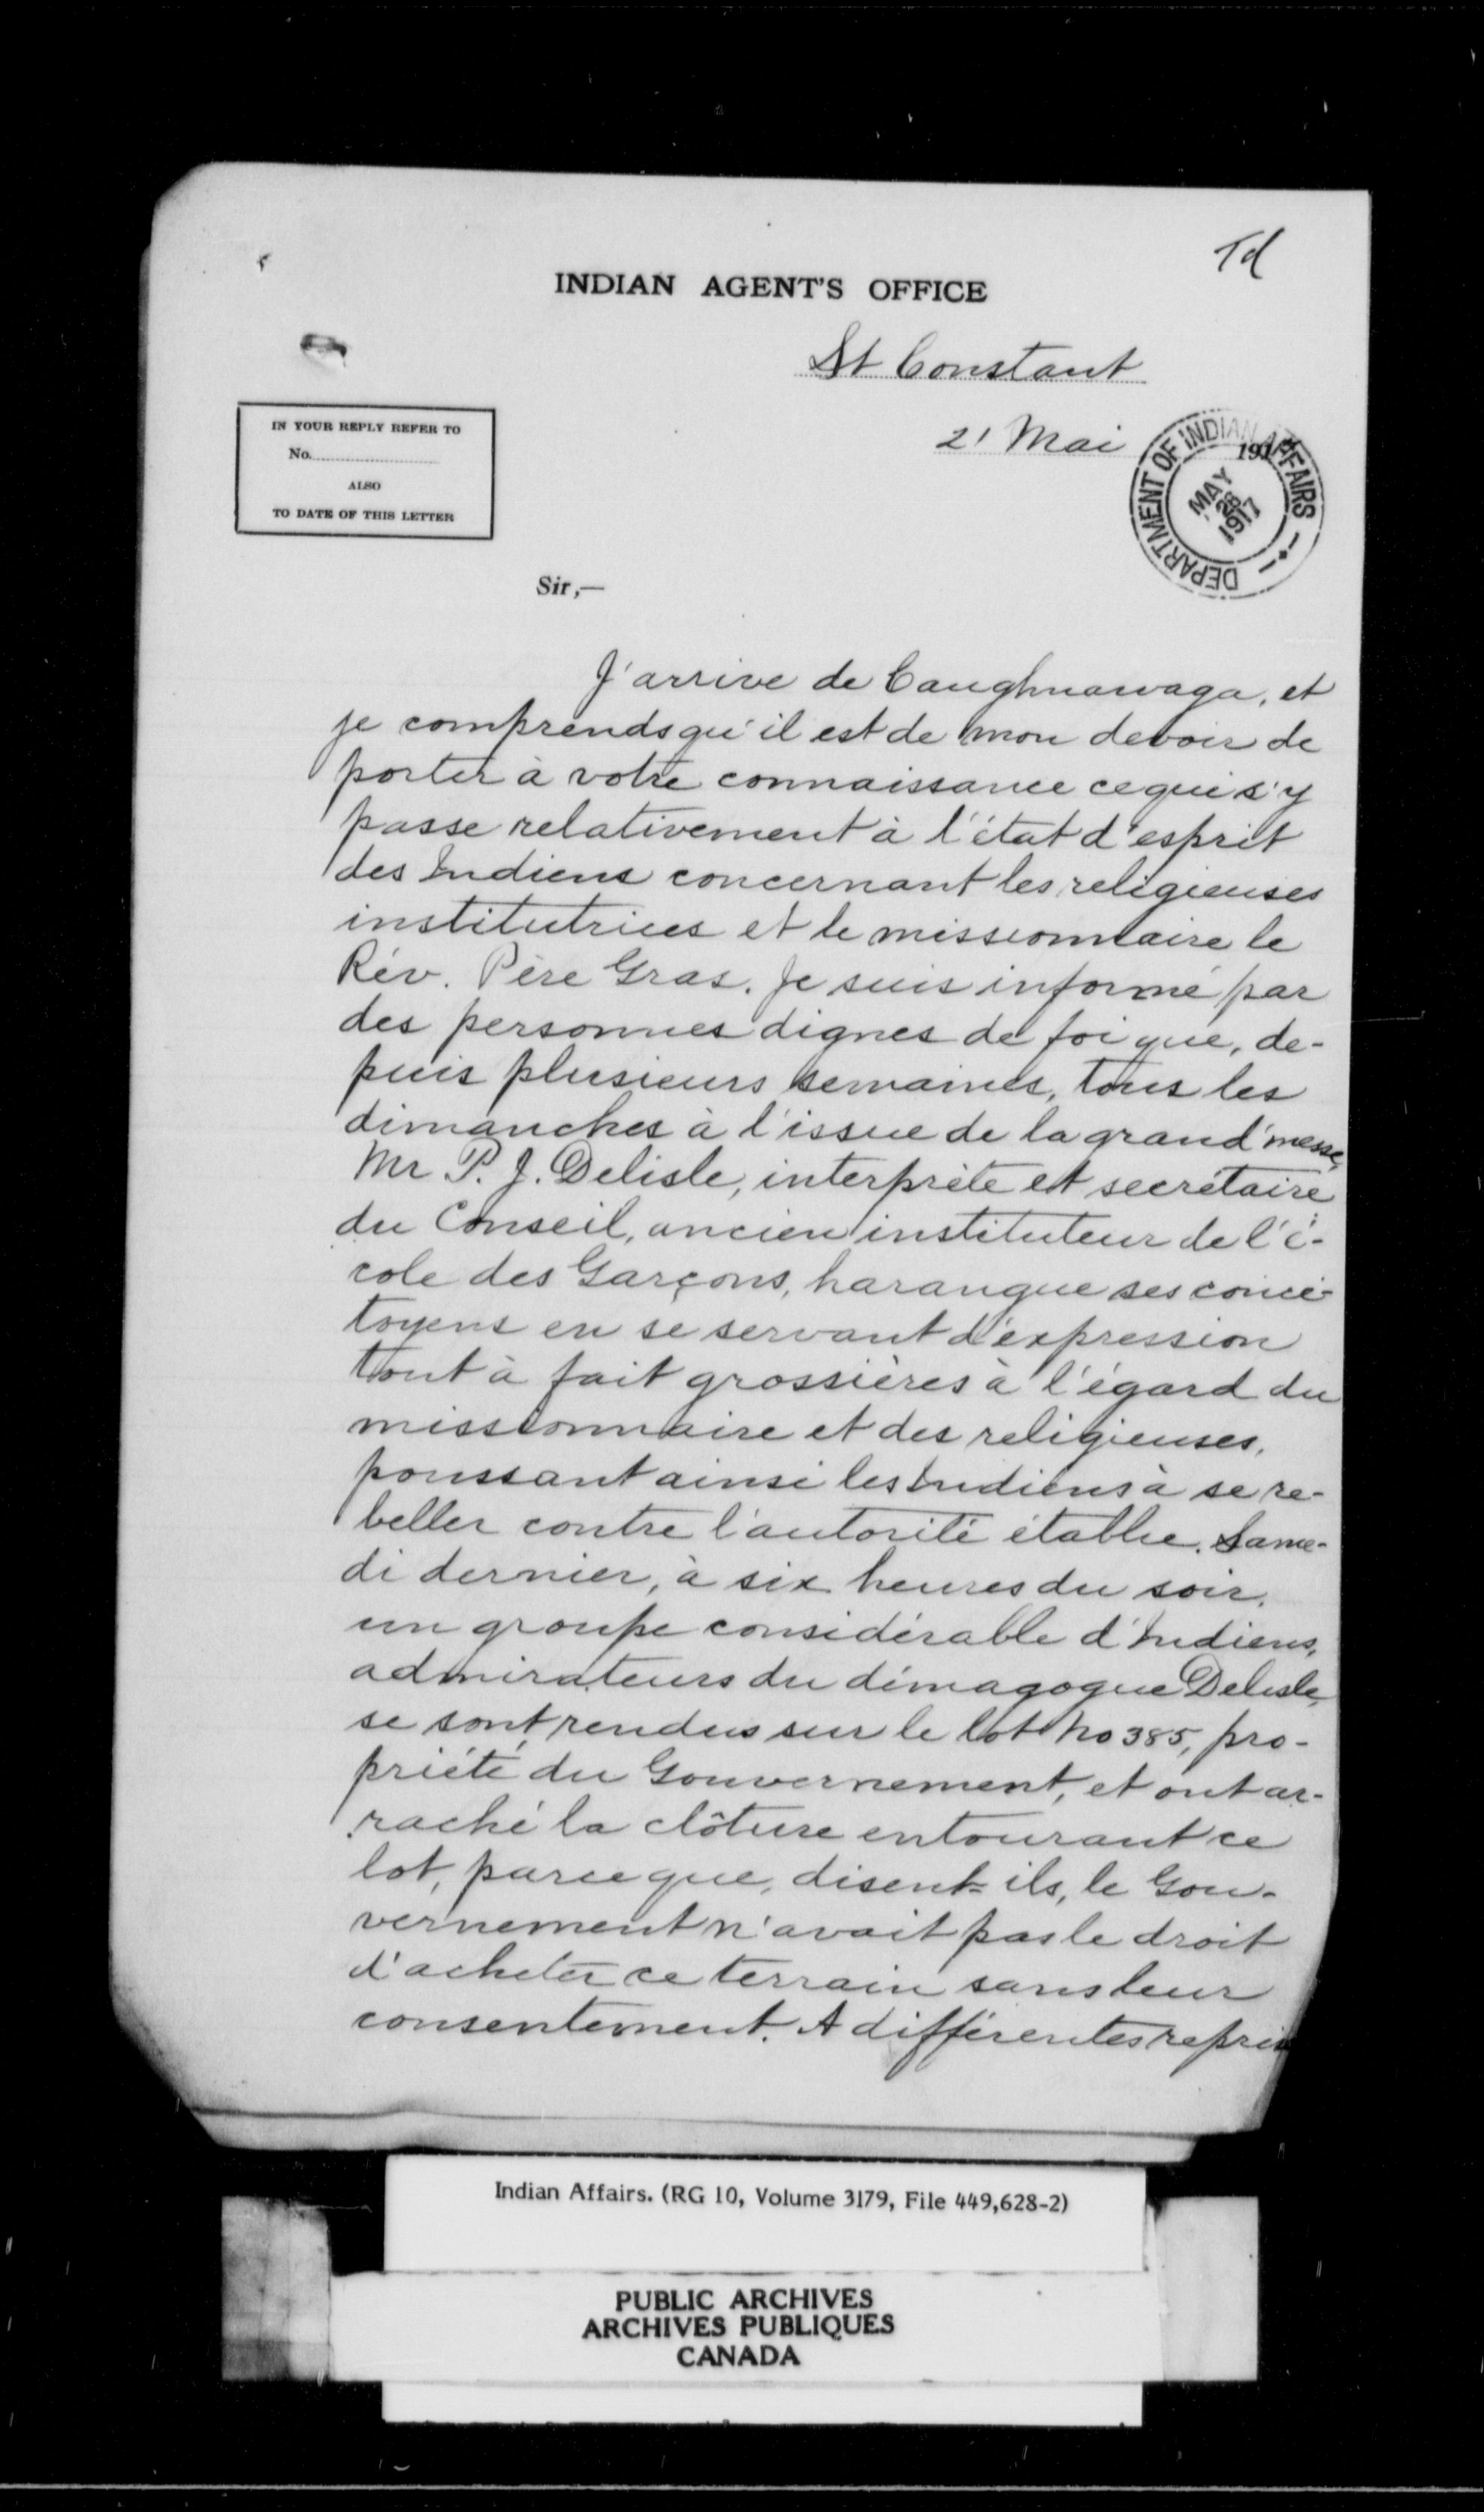 Td
INDIAN AGENT'S OFFICE
St Constant
21 Mai 191
IN YOUR REPLY REFER TO
No.
ALSO
TO DATE OF THIS LETTER
DEPARTMENT OF INDIAN AFFAIRS
MAY
26
1917
Sir,—
J'arrive de Caughnawaga, et
je comprends qu'il est de mon devoir de
porter à votre connaissance ce qui s'y
passe relativement à l'état d'esprit
des Indiens concernant les religieuses
institutrices et le missionnaire le
Rév. Père Gras. Je suis informé par
des personnes dignes de foi que, de-
puis plusieurs semaines, tous les
dimanches à l'issue de la grand'messe,
Mr P. J. Delisle, interprète et secrétaire
du Conseil, ancien instituteur de l'é-
cole des Garçons, harangue ses conci-
toyens en se servant d'expression
tout à fait grossières à l'égard du
missionnaire et des religieuses,
poussant ainsi les Indiens à se re-
beller contre l'autorité établie. Same-
di dernier, à six heures du soir,
un groupe considérable d'Indiens,
admirateurs du démagogue Delisle,
se sont rendus sur le lot No 385, pro-
priété du Gouvernement, et ont ar-
raché la clôture entourant ce
lot, parce que, disent-ils, le Gou-
vernement n'avait pas le droit
d'acheter ce terrain sans leur
consentement. A différentes repris
Indian Affairs. (RG 10, Volume 3179, File 449,628-2)
PUBLIC ARCHIVES
ARCHIVES PUBLIQUES
CANADA